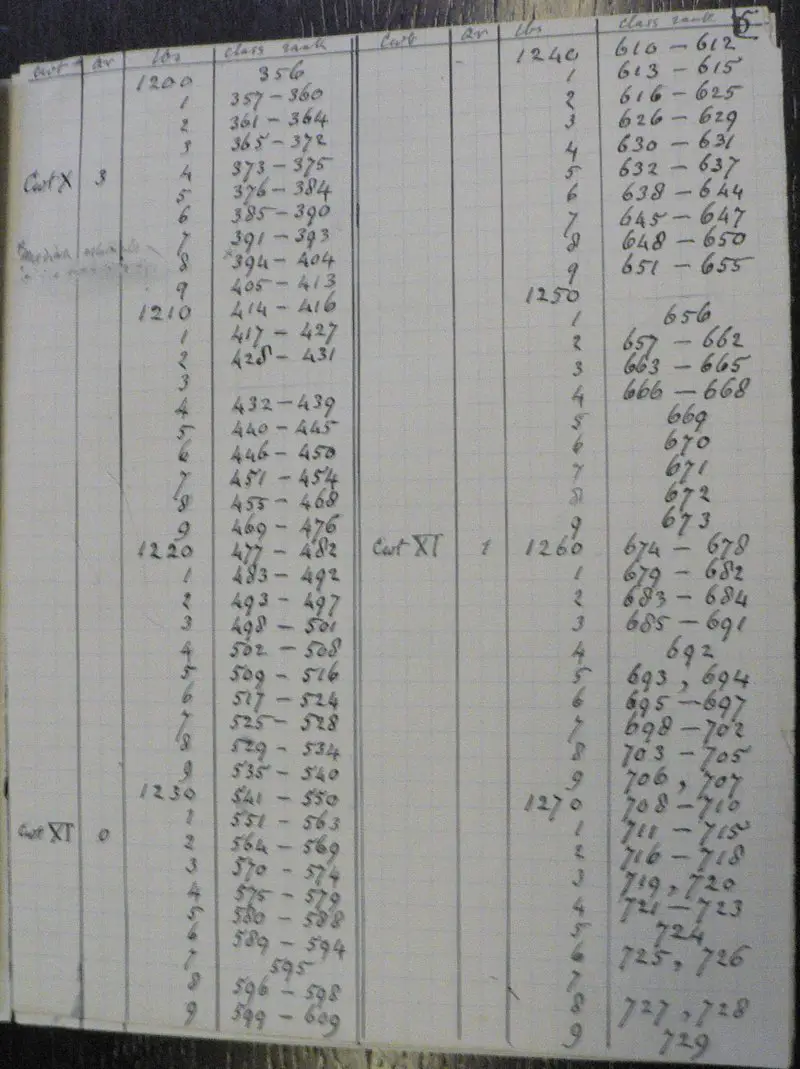 5
cwt qr lbs class rank
1200 356
1 357-360
2 361-364
3 365-372
Cwt X 3 4 373-375
5 376-384
6 385-390
7 391-393
8 394-404
9 405-413
1210 414-416
1 417-427
2 428-431
3
4 432-439
5 440-445
6 446-450
7 451-454
8 455-468
9 469-476
1220 477-482
1 483-492
2 493-497
3 498-501
4 502-508
5 509-516
6 517-524
7 525-528
8 529-534
9 535-540
1230 541-550
1 551-563
Cwt XI 0 2 564-569
3 570-574
4 575-579
5 580-588
6 589-594
7 595
8 596-598
9 599-609
Cwt qr lbs class rank
1240 610-612
1 613-615
2 616-625
3 626-629
4 630-631
5 632-637
6 638-644
7 645-647
8 648-650
9 651-655
1250
1 656
2 657-662
3 663-665
4 666-668
5 669
6 670
7 671
8 672
9 673
Cwt XI 1 1260 674-678
1 679-682
2 683-684
3 685-691
4 692
5 693, 694
6 695-697
7 698-702
8 703-705
9 706, 707
1270 708-710
1 711-715
2 716-718
3 719, 720
4 721-723
5 724
6 725, 726
7
8 727, 728
9 729